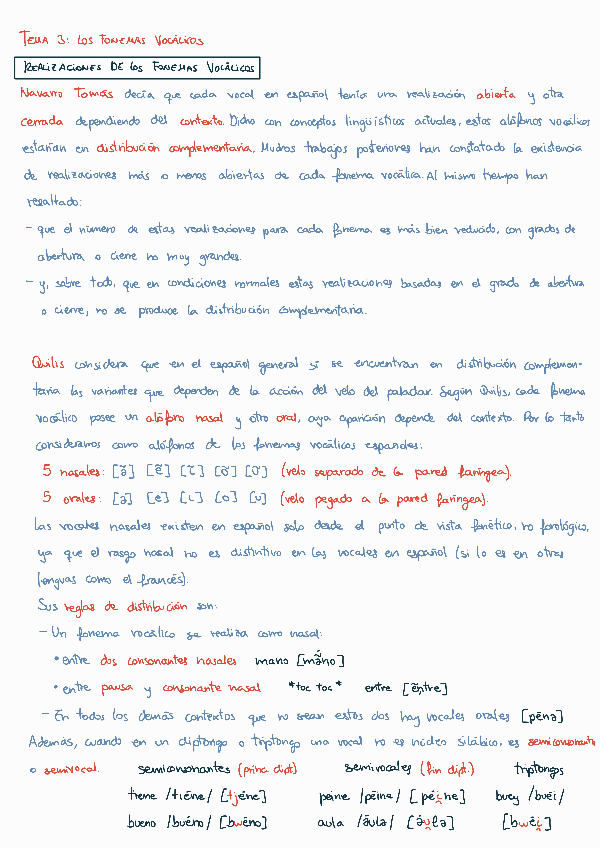 TEMA 3: LOS FONEMAS VOCÁLICOS
REALIZACIONES DE LOS FONEMAS VOCÁLICOS
Navarro Tomás decía que cada vocal en español tenía una realización abierta y otra
cerrada dependiendo del contexto. Dicho con conceptos lingüísticos actuales, estos alófonos vocálicos
estarían en distribución complementaria. Muchos trabajos posteriores han constatado la existencia
de realizaciones más o menos abiertas de cada fonema vocálico. Al mismo tiempo han
resaltado:
- que el número de estas realizaciones para cada fonema es más bien reducido, con grados de
abertura o cierre no muy grandes.
- y, sobre todo, que en condiciones normales estas realizaciones basadas en el grado de abertura
o cierre, no se produce la distribución complementaria.
Quilis considera que en el español general sí se encuentran en distribución complemen-
taria las variantes que dependen de la acción del velo del paladar. Según Quilis, cada fonema
vocálico posee un alófono nasal y otro oral, cuya aparición depende del contexto. Por lo tanto
consideramos como alófonos de los fonemas vocálicos españoles:
5 nasales: [ã] [ẽ] [ĩ] [õ] [ũ] (velo separado de la pared faríngea).
5 orales: [a] [e] [i] [o] [u] (velo pegado a la pared faríngea).
Las vocales nasales existen en español solo desde el punto de vista fonético, no fonológico,
ya que el rasgo nasal no es distintivo en las vocales en español (sí lo es en otras
lenguas como el francés).
Sus reglas de distribución son:
- Un fonema vocálico se realiza como nasal:
• entre dos consonantes nasales mano [mãno]
• entre pausa y consonante nasal *toc toc* entre [ẽntre]
- En todos los demás contextos que no sean estos dos hay vocales orales [péna]
Además, cuando en un diptongo o triptongo una vocal no es núcleo silábico, es semiconsonante
o semivocal. semiconsonantes (princ dipt) semivocales (fin dipt.) triptongos
tiene /tiéne/ [tjéne] peine /péine/ [péi̯ne] buey /buéi/
bueno /buéno/ [bwéno] aula /áula/ [áu̯la] [bwéi̯]